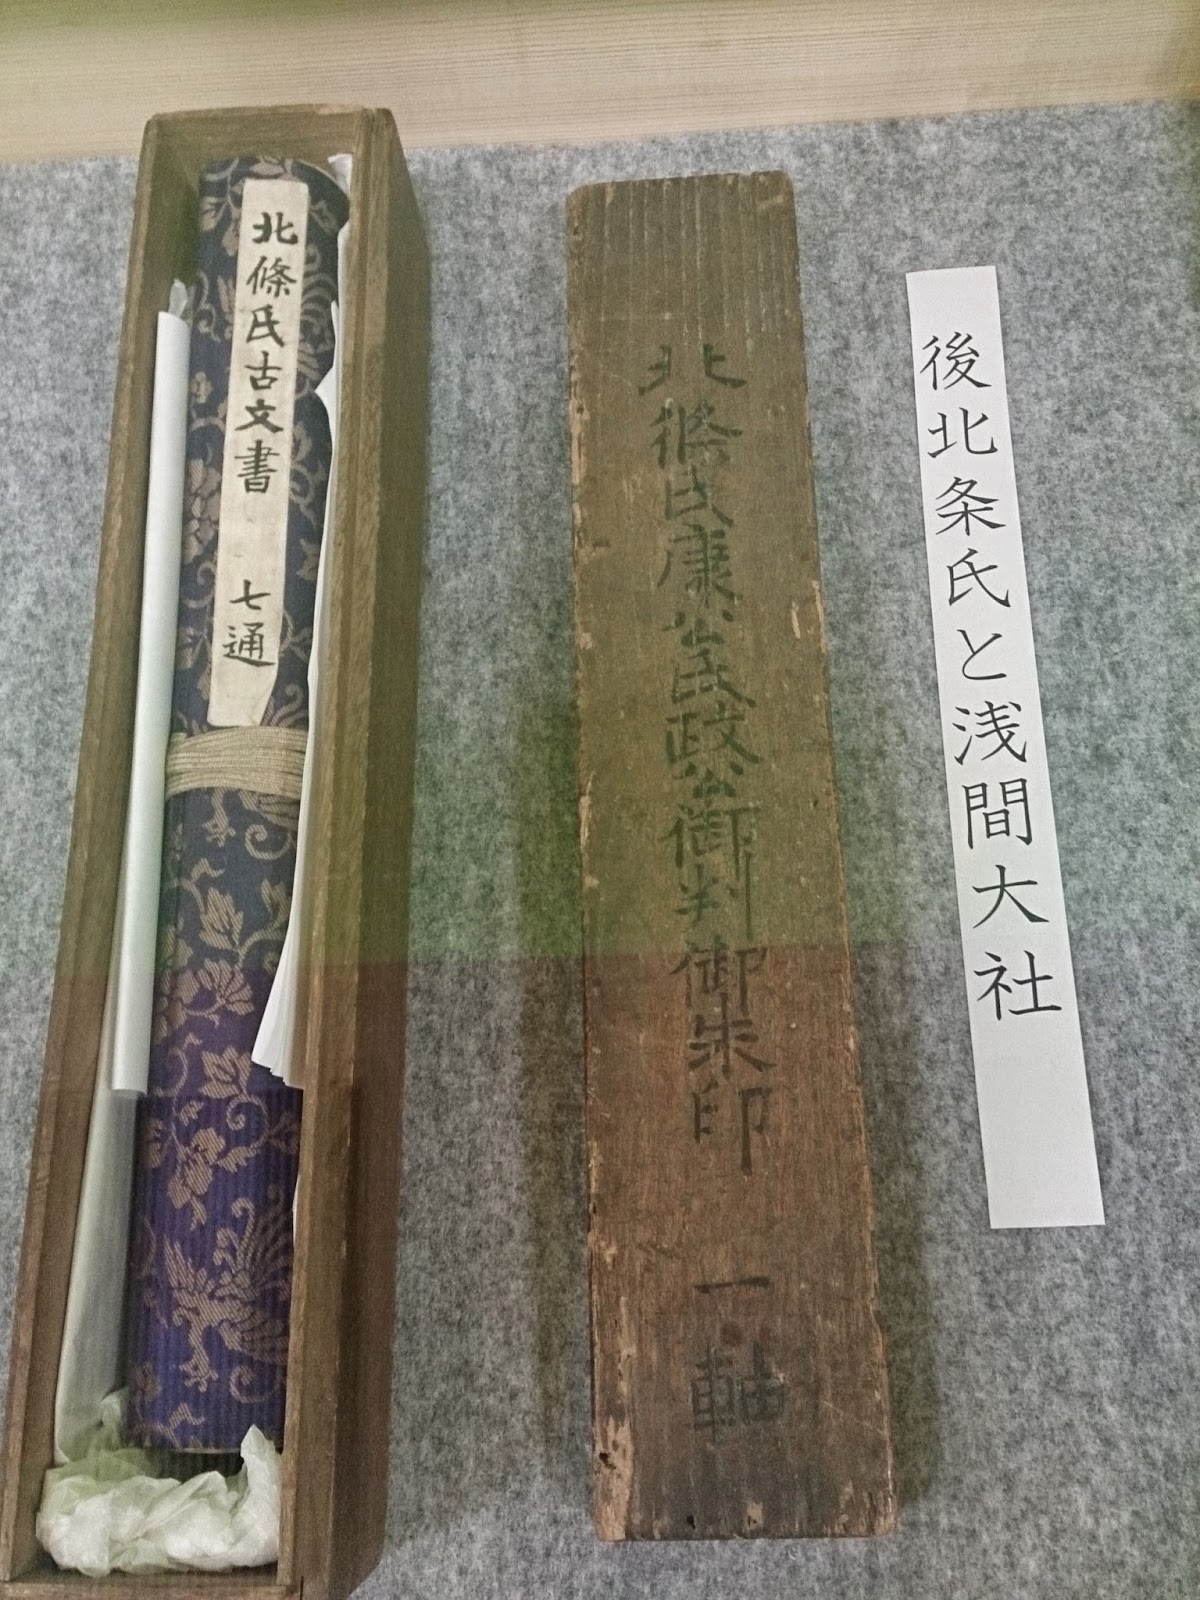 後北条氏と浅間大社
北條氏康公氏政公御判御朱印 一軸
北條氏古文書 七通